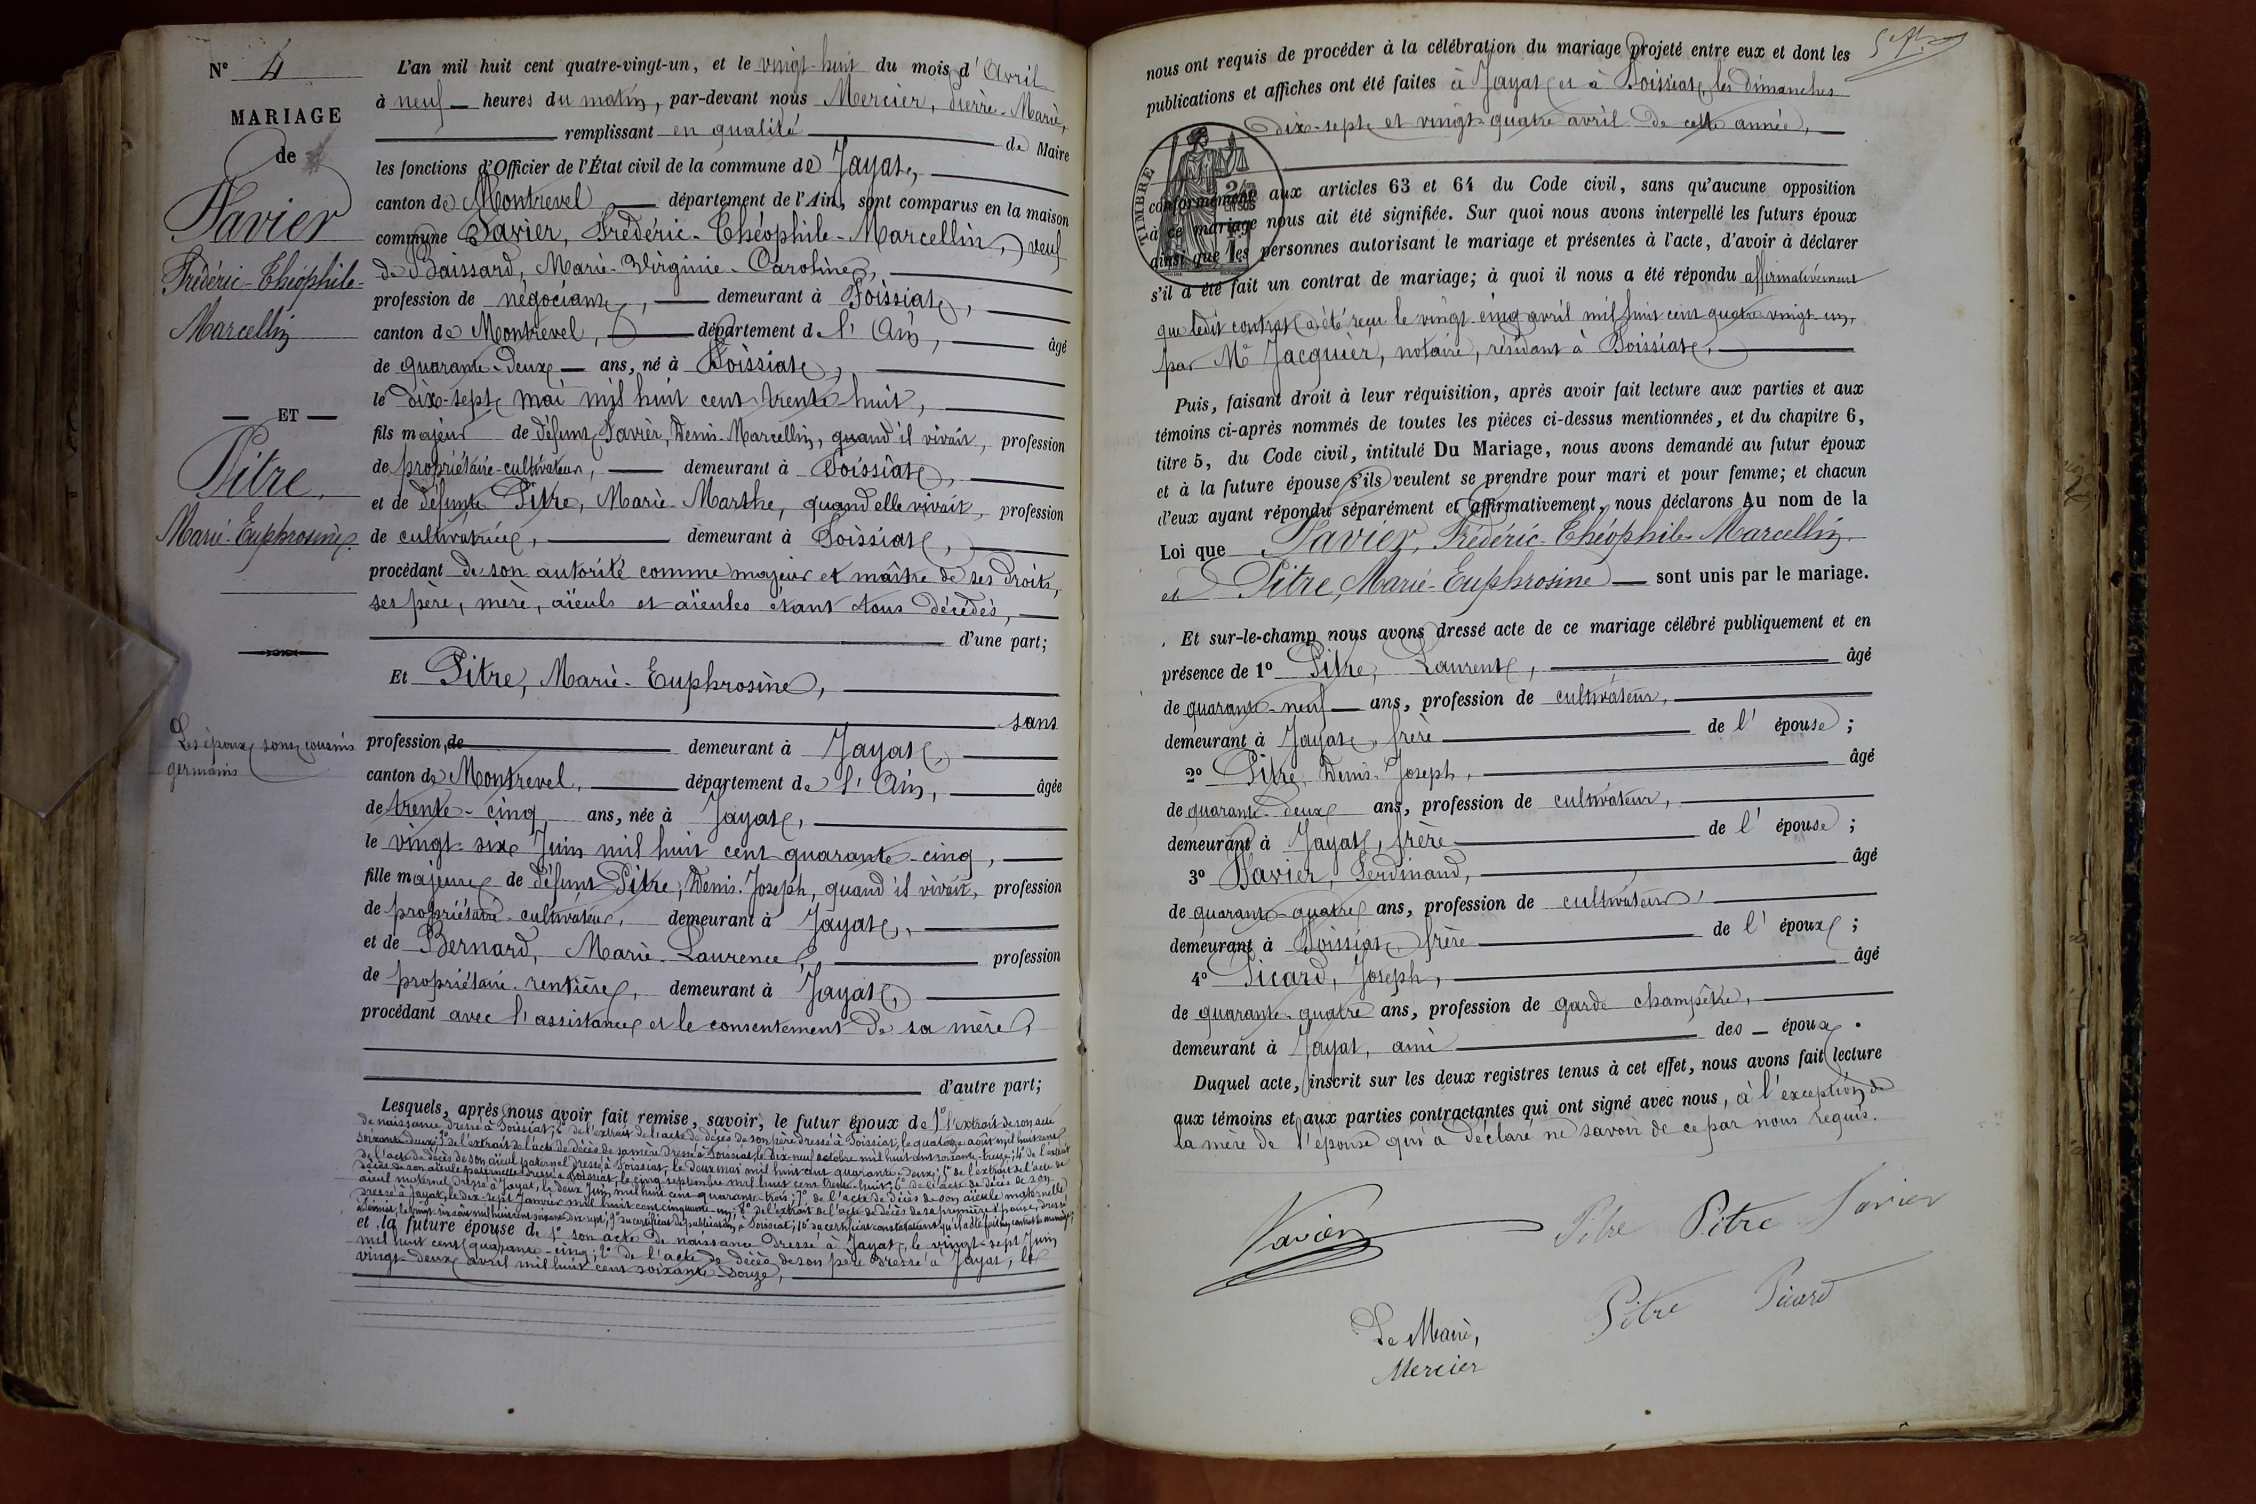 N° 4
MARIAGE
de
Favier
Frédéric-Théophile-
Marcellin
ET
Pitre,
Marie-Euphrosine.
Les époux sont cousins
germains
L'an mil huit cent quatre-vingt-un, et le vingt-huit du mois d'Avril
à neuf heures du matin, par-devant nous Mercier, Pierre-Marie,
remplissant en qualité de Maire
les fonctions d'Officier de l'État civil de la commune de Jayat,
canton de Montrevel département de l'Ain, sont comparus en la maison
commune Favier, Frédéric-Théophile-Marcellin, veuf
de Baissard, Marie-Virginie-Caroline,
profession de négociant, demeurant à Foissiat,
canton de Montrevel, département de l'Ain, âgé
de quarante-deux ans, né à Foissiat,
le dix-sept mai mil huit cent trente huit,
fils majeur de défunt Favier, Denis-Marcellin, quand il vivait, profession
de propriétaire-cultivateur, demeurant à Foissiat,
et de défunte Pitre, Marie-Marthe, quand elle vivait, profession
de cultivatrice, demeurant à Foissiat,
procédant de son autorité comme majeur et maître de ses droits,
ses père, mère, aïeuls et aïeules étant tous décédés,
d'une part;
Et Pitre, Marie-Euphrosine,
sans
profession, de demeurant à Jayat,
canton de Montrevel, département de l'Ain, âgée
de trente-cinq ans, née à Jayat,
le vingt-six Juin mil huit cent quarante-cinq,
fille majeure de défunt Pitre, Denis-Joseph, quand il vivait, profession
de propriétaire-cultivateur, demeurant à Jayat,
et de Bernard, Marie-Laurence, profession
de propriétaire-rentière, demeurant à Jayat,
procédant avec l'assistance et le consentement de sa mère,
d'autre part;
Lesquels, après nous avoir fait remise, savoir, le futur époux de 1° l'extrait de son acte
de naissance dressé à Foissiat; 2° de l'extrait de l'acte de décès de son père dressé à Foissiat, le quatorze août mil huit cent
soixante-deux; 3° de l'extrait de l'acte de décès de sa mère dressé à Foissiat, le dix-neuf octobre mil huit cent soixante-treize; 4° de l'extrait
de l'acte de décès de son aïeul paternel dressé à Foissiat, le deux mai mil huit cent quarante-deux; 5° de l'extrait de l'acte de
décès de son aïeule paternelle dressé à Foissiat, le cinq septembre mil huit cent trente-huit; 6° de l'acte de décès de son
aïeul maternel dressé à Jayat, le deux Juin mil huit cent quarante-trois; 7° de l'acte de décès de son aïeule maternelle
dressé à Jayat, le dix-sept Janvier mil huit cent cinquante-un; 8° de l'extrait de l'acte de décès de sa première épouse, dressé
à le vingt-six août mil huit cent soixante-dix-sept; 9° du certificat de publication, à Foissiat; 10° du certificat constatant qu'il a été fait un contrat de mariage;
et la future épouse de 1° son acte de naissance dressé à Jayat, le vingt-sept Juin
mil huit cent quarante-cinq; 2° de l'acte de décès de son père dressé à Jayat, le
vingt-deux avril mil huit cent soixante-douze,
nous ont requis de procéder à la célébration du mariage projeté entre eux et dont les
publications et affiches ont été faites à Jayat et à Foissiat, les dimanches
dix-sept et vingt-quatre avril de cette année,
TIMBRE
2/10
EN SUS
conformément aux articles 63 et 64 du Code civil, sans qu'aucune opposition
à ce mariage nous ait été signifiée. Sur quoi nous avons interpellé les futurs époux
ainsi que les personnes autorisant le mariage et présentes à l'acte, d'avoir à déclarer
s'il a été fait un contrat de mariage; à quoi il nous a été répondu affirmativement
que ledit contrat a été reçu le vingt-cinq avril mil huit cent quatre-vingt-un,
par Me Jacquier, notaire, résidant à Foissiat,
Puis, faisant droit à leur réquisition, après avoir fait lecture aux parties et aux
témoins ci-après nommés de toutes les pièces ci-dessus mentionnées, et du chapitre 6,
titre 5, du Code civil, intitulé Du Mariage, nous avons demandé au futur époux
et à la future épouse s'ils veulent se prendre pour mari et pour femme; et chacun
d'eux ayant répondu séparément et affirmativement, nous déclarons Au nom de la
Loi que Favier, Frédéric-Théophile-Marcellin
et Pitre, Marie-Euphrosine sont unis par le mariage.
Et sur-le-champ nous avons dressé acte de ce mariage célébré publiquement et en
présence de 1° Pitre, Laurent, âgé
de quarante-neuf ans, profession de cultivateur,
demeurant à Jayat, frère de l'épouse;
2° Pitre, Denis-Joseph, âgé
de quarante-deux ans, profession de cultivateur,
demeurant à Jayat, frère de l'épouse;
3° Favier, Ferdinand, âgé
de quarante-quatre ans, profession de cultivateur,
demeurant à Foissiat, frère de l'époux;
4° Picard, Joseph, âgé
de quarante-quatre ans, profession de garde champêtre,
demeurant à Jayat, ami des époux.
Duquel acte, inscrit sur les deux registres tenus à cet effet, nous avons fait lecture
aux témoins et aux parties contractantes qui ont signé avec nous, à l'exception de
la mère de l'épouse qui a déclaré ne savoir de ce par nous requis.
Favier Pitre Pitre Favier
Pitre Picard
Le Maire,
Mercier